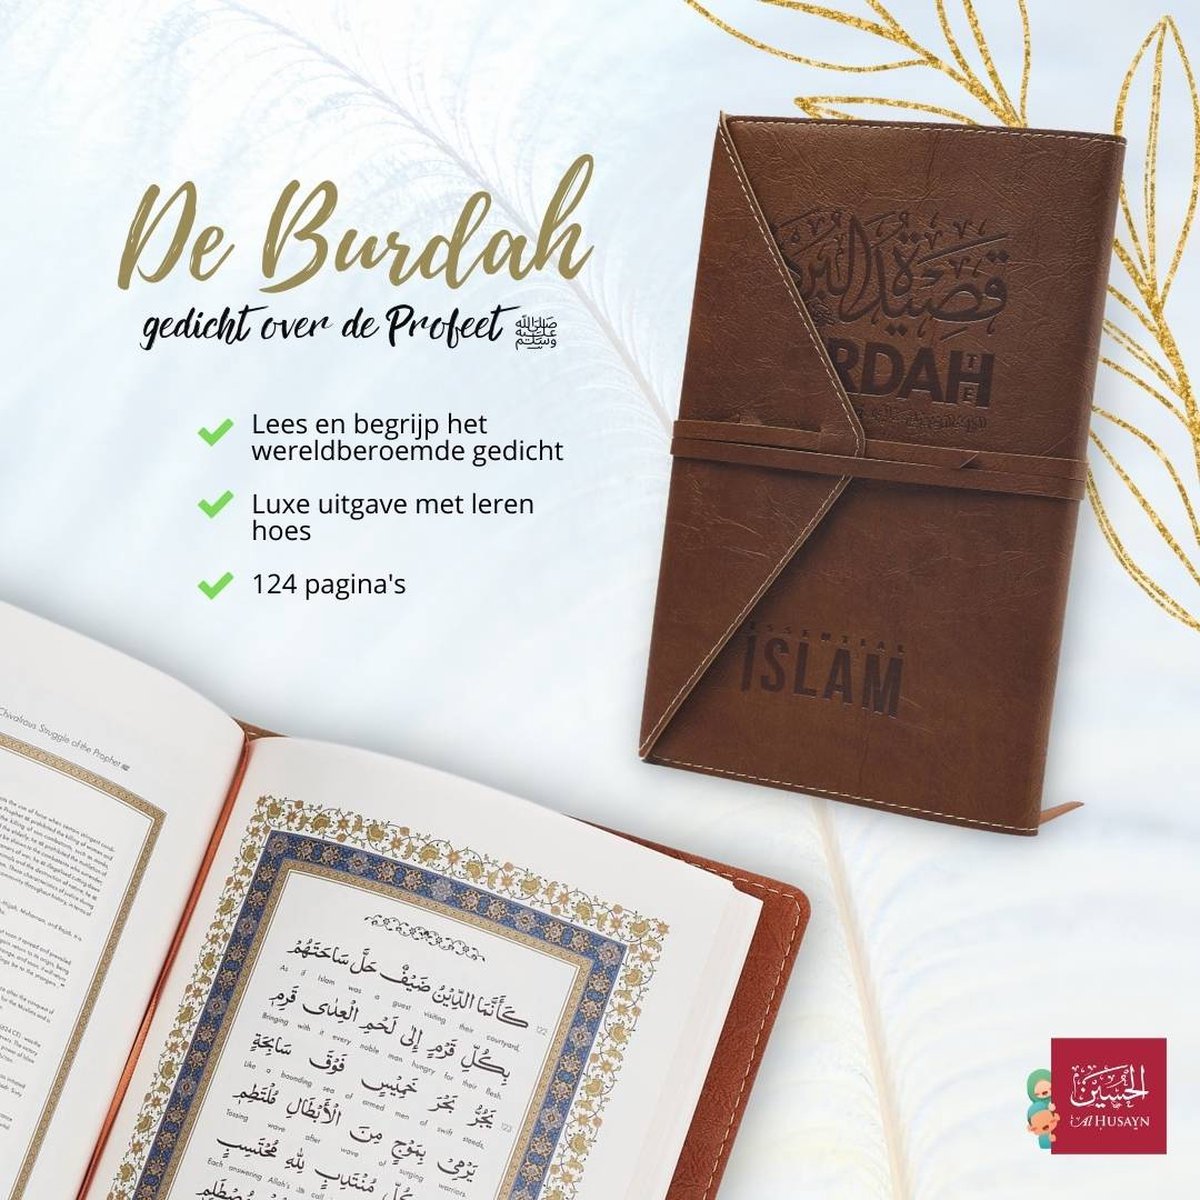 De Burdah
gedicht over de Profeet ﷺ
Lees en begrijp het
wereldberoemde gedicht
Luxe uitgave met leren
hoes
124 pagina's
قصيدة البرد
RDAH
THE
ESSENTIAL
ISLAM
Chivalrous Struggle of the Prophet ﷺ
كَأَنَّمَا الدِّيْنُ ضَيْفٌ حَلَّ سَاحَتَهُمْ
As if Islam was a guest visiting their courtyard,
122
بِكُلِّ قَرْمٍ إِلَى لَحْمِ الْعِدَى قَرِمِ
Bringing with it every noble man hungry for their flesh.
يَجُرُّ بَحْرَ خَمِيْسٍ فَوْقَ سَابِحَةٍ
Like a bounding sea of armed men of swift steeds,
123
يَرْمِيْ بِمَوْجٍ مِنَ الْأَبْطَالِ مُلْتَطِمِ
Tossing wave after wave of surging warriors.
كُلِّ مُنْتَدِبٍ لِلّٰهِ مُحْتَسِبٍ
Each answering Allah's call
الحسين
Al Husayn